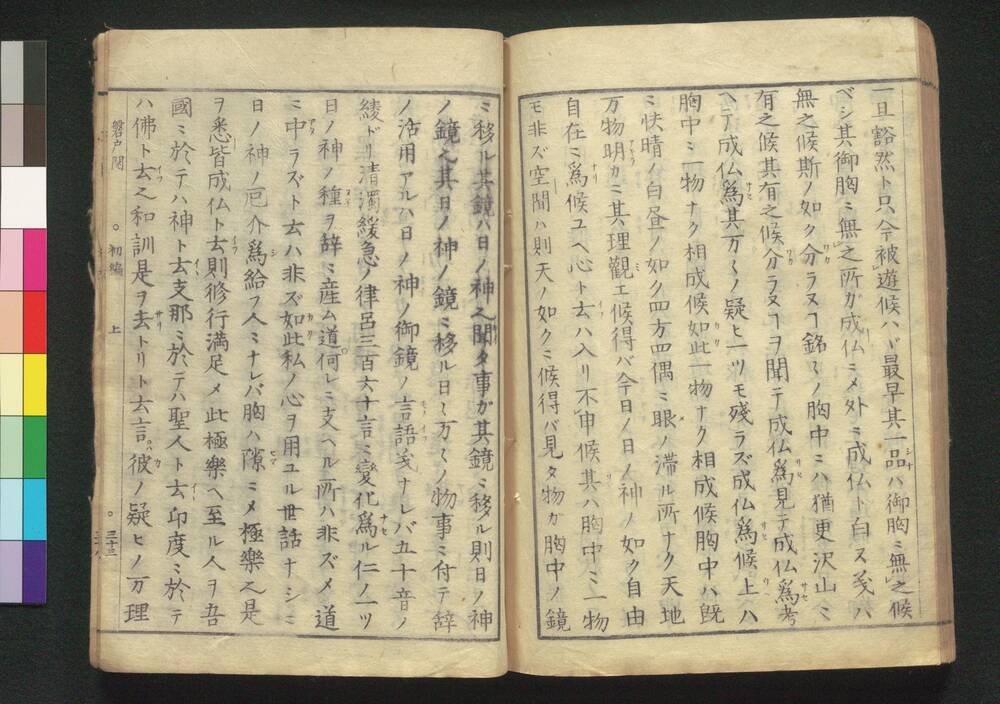 一旦豁然ト只今被遊候ハバ最早其一品ハ御胸ミ無之候
ベシ其御胸ミ無之所ガ成仏ミメ外ミ成仏ト白ス𫝆ハ
無之候斯ノ如ク分ラヌヿ銘ミノ胸中ミハ猶更沢山ミ
有之候其有之候分ラヌヿヲ聞テ成仏爲見テ成仏爲考
ヘテ成仏爲其万ミノ疑ヒ一ツモ殘ラズ成仏爲候上ハ
胸中ミ一物ナク相成候如此一物ナク相成候胸中ハ既
ミ快晴ノ白昼ノ如ク四方四偶ミ眼ノ滞ル所ナク天地
万物明カミ其理觀エ候得バ今日ノ日ノ神ノ如ク自由
自在ミ爲候ユヘ心ト去ハ入リ不申候其ハ胸中ミ一物
モ非ズ空間ハ則天ノ如クミ候得バ見タ物ガ胸中ノ鏡
ミ移ル其鏡ハ日ノ神之聞タ事ガ其鏡ミ移ル則日ノ神
ノ鏡之其日ノ神ノ鏡ミ移ル日ミ万ミノ物事ミ付テ辞
ノ活用アルハ日ノ神ノ御鏡ノ言語𫝆ナレバ五十音ノ
綾ドリ清濁緩急ノ律呂三百六十言ミ變化爲ル仁ノ一ツ
日ノ神ノ種ヲ辞ミ産ム道何レミ支ヘル所ハ非ズメ道
ミ中ラズト去ハ非ズ如此私ノ心ヲ用ユル世話ナシミ
日ノ神ノ厄介爲給フ人ミナレバ胸ハ隙ミメ極樂之是
ヲ悉皆成仏ト去則修行満足メ此極樂ヘ至ル人ヲ吾
國ミ於テハ神ト去支那ミ於テハ聖人ト去印度ミ於テ
ハ佛ト去之和訓是ヲ去トリト去言彼ノ疑ヒノ万理
磐戸開 ○ 初編 上 ○ 三十三